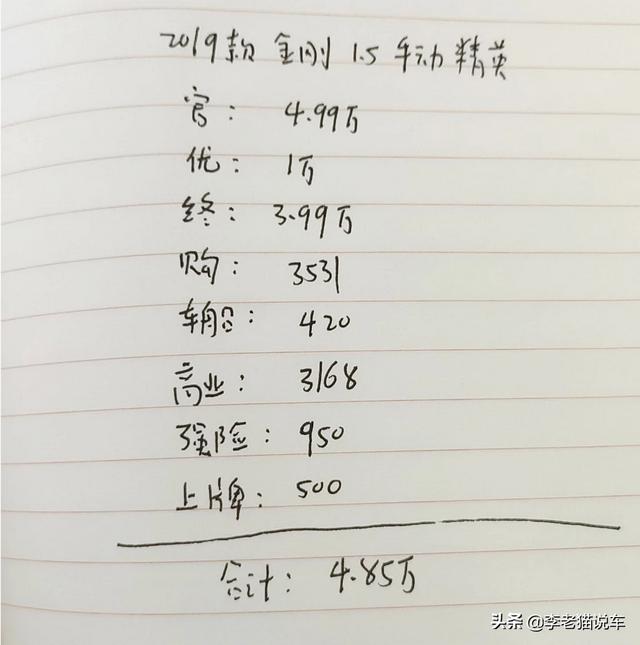 2019款 金刚 1.5 手动精英
官: 4.99万
优: 1万
终: 3.99万
购: 3531
车船: 420
商业: 3168
强险: 950
上牌: 500
合计: 4.85万
头条 @李老猫说车